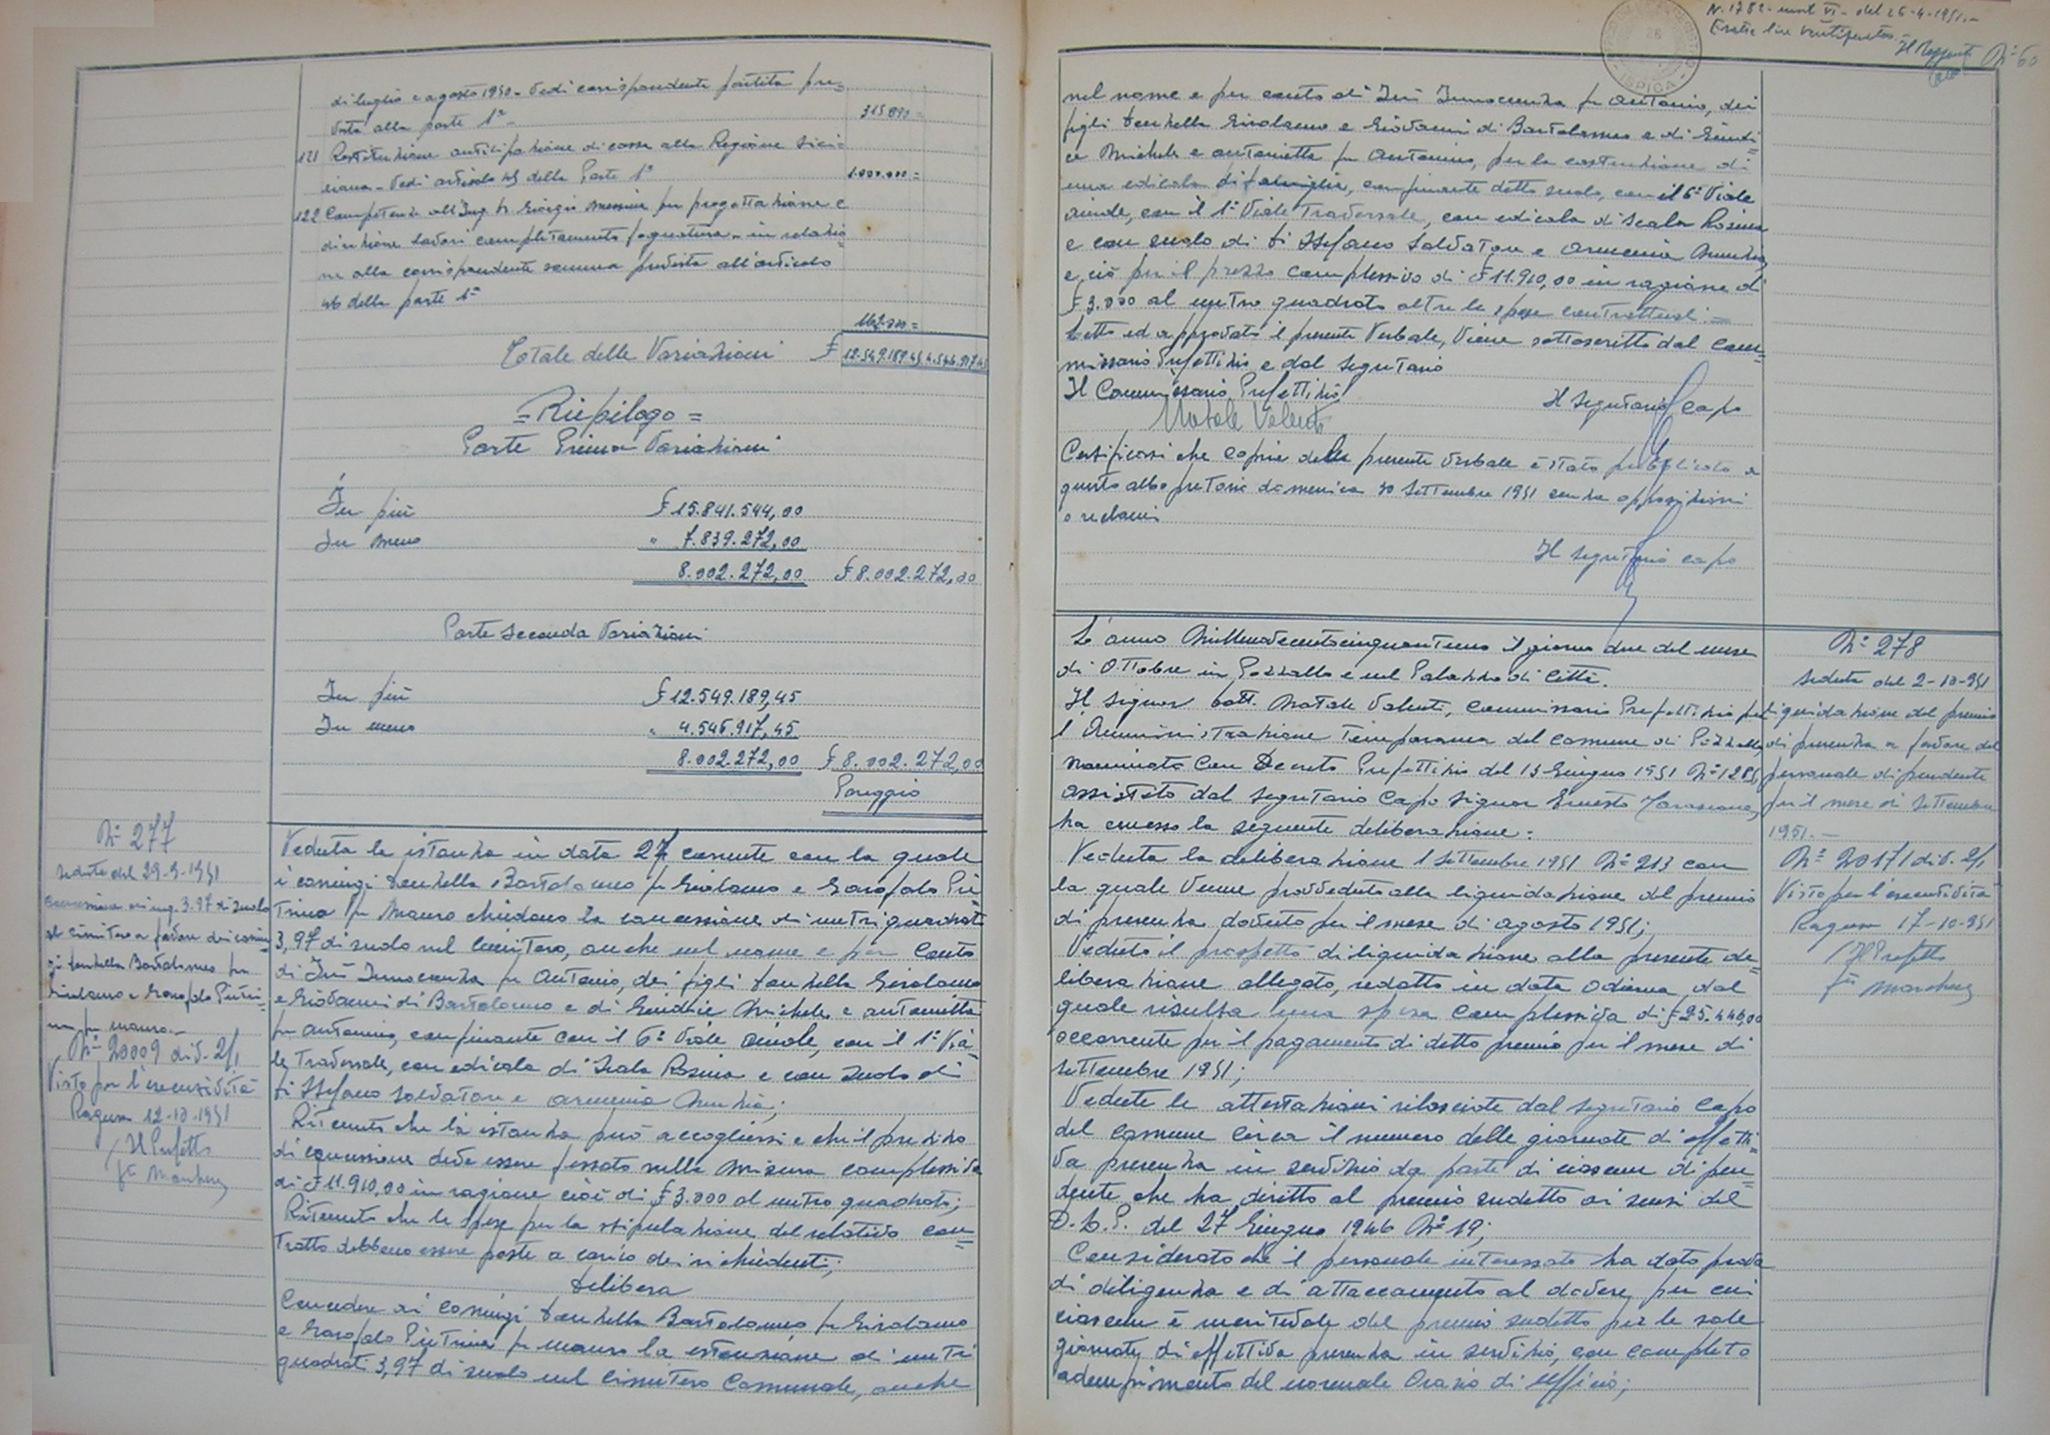 di luglio e agosto 1950 - Vedi corrispondente partita pre=
vista alla parte 1ª -
315.890 =
121 Restituzione anticipazione di cassa alla Regione Sici=
liana - Vedi articolo 45 della Parte 1ª
1.000.000 =
122 Competenze all'Ing. Giorgio per progettazione e
direzione lavori completamento fognatura - in relazio=
ne alla corrispondente somma prevista all'articolo
46 della parte 1ª
Totale delle Variazioni £ 12.549.189,45 4.546.917,45
= Riepilogo =
Parte Prima Variazioni
In più £ 15.841.544,00
In meno " 7.839.272,00
8.002.272,00 £ 8.002.272,00
Parte Seconda Variazioni
In più £ 12.549.189,45
In meno " 4.546.917,45
8.002.272,00 £ 8.002.272,00
Pareggio
N° 277
Seduta del 29-9-1951
Concessione di mq. 3.97 di suolo
al cimitero a favore dei coniu=
gi Bartolomeo fu
Girolamo e Garofalo Pietri=
na fu Mauro.-
N° 20009 div. 2/1
Visto per l'esecutività
Ragusa 12-10-1951
Il Prefetto
Veduta la istanza in data 27 corrente con la quale
i coniugi Bartolomeo fu Girolamo e Garofalo Pie=
trina fu Mauro chiedono la concessione di metri quadrati
3,97 di suolo nel Cimitero, anche nel nome e per conto
di Innocenza fu Antonio, dei figli Girolamo
e Giovanni di Bartolomeo e di Giudice Michele e Antonietta
fu Antonino, confinante con il 6° Viale, con il 1° Via=
le Trasversale, con edicola di Scala Rosina e con suolo di
Di Stefano Salvatore e Armenia Nunzia;
Ritenuto che la istanza può accogliersi e che il prezzo
di concessione deve essere fissato nella misura complessiva
di £ 11.910,00 in ragione cioè di £ 3.000 al metro quadrato;
Ritenuto che le spese per la stipulazione del relativo con=
tratto debbono essere poste a carico dei richiedenti;
Delibera
Concedere ai coniugi Bartolomeo fu Girolamo
e Garofalo Pietrina fu Mauro la estensione di metri
quadrati 3,97 di suolo nel Cimitero Comunale, anche
N. 1782 - mod VI - del 26-4-1951.-
ISPICA
N° 60
nel nome e per conto di Innocenza fu Antonio, dei
figli Girolamo e Giovanni di Bartolomeo e di Giudi=
ce Michele e Antonietta fu Antonino, per la costruzione di
una edicola di famiglia, confinante detto suolo, con il 6° Viale
, con il 1° Viale Trasversale, con edicola di Scala Rosina
e con suolo di Di Stefano Salvatore e Armenia Nunzia,
e ciò per il prezzo complessivo di £ 11.910,00 in ragione di
£ 3.000 al metro quadrato oltre le spese contrattuali.=
Letto ed approvato il presente Verbale, viene sottoscritto dal Com=
missario Prefettizio e dal Segretario
Il Commissario Prefettizio Il Segretario Capo
Natale Valenti
Certificasi che copia della presente Verbale è stato pubblicato a
questo albo pretorio domenica 30 Settembre 1951 senza opposizioni
o reclami
Il Segretario Capo
L'anno Millenovecentocinquantuno il giorno due del mese
di Ottobre in Pozzallo e nel Palazzo di Città.
Il Signor Dott. Natale Valenti, Commissario Prefettizio per
l'Amministrazione Temporanea del Comune di Pozzallo
nominato con Decreto Prefettizio del 13 Giugno 1951 N°
assistito dal Segretario Capo Signor Ernesto
ha emesso la seguente deliberazione:
Veduta la deliberazione 1 Settembre 1951 N° 213 con
la quale venne provveduto alla liquidazione del premio
di presenza dovuto per il mese di agosto 1951;
Veduto il prospetto di liquidazione alla presente de=
liberazione allegato, redatto in data odierna, dal
quale risulta una spesa complessiva di £ 25.446,00
occorrente per il pagamento di detto premio per il mese di
Settembre 1951;
Vedute le attestazioni rilasciate dal Segretario Capo
del Comune circa il numero delle giornate di effetti=
va presenza in servizio da parte di ciascun dipen=
dente che ha diritto al premio sudetto ai sensi del
D.L.P. del 27 Giugno 1946 N° 19;
Considerato che il personale interessato ha dato prova
di diligenza e di attaccamento al dovere, per cui
ciascuno è meritevole del premio sudetto per le sole
giornate di effettiva presenza in servizio, con completo
adempimento del normale Orario di Ufficio;
N° 278
Seduta del 2-10-951
Liquidazione del premio
di presenza a favore del
personale dipendente
per il mese di Settembre
1951.-
N° 20171 div. 2/1
Visto per l'esecutività
Ragusa 17-10-951
Il Prefetto